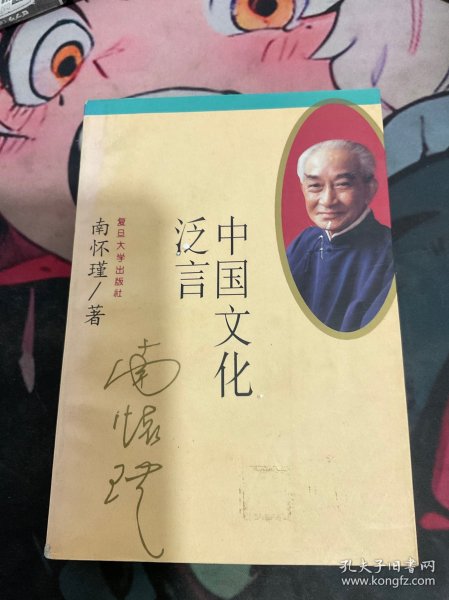 中国文化
泛言
复旦大学出版社
南怀瑾/著
南怀瑾
孔夫子旧书网
www.kongfz.com